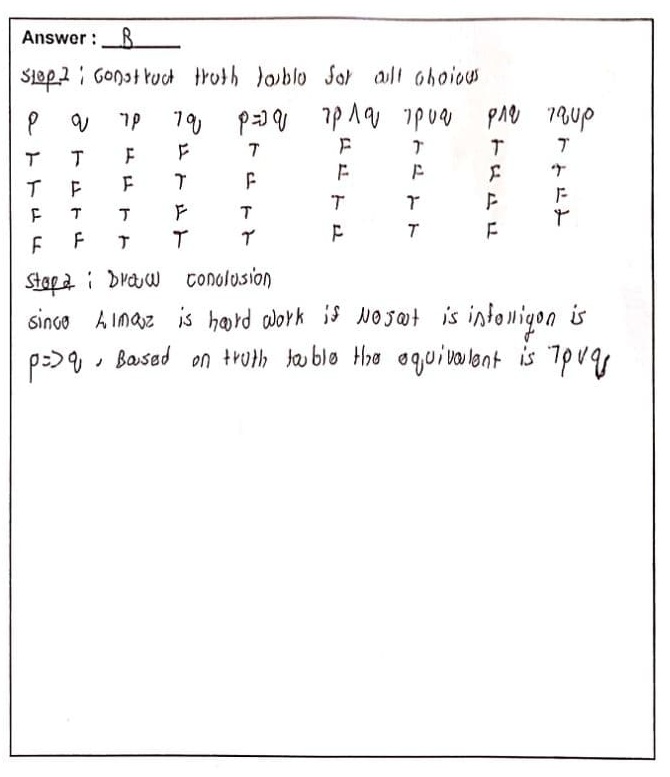 Answer : B
Step 1 ; Construct truth table for all choices
p q ¬p ¬q p=>q ¬p∧q ¬p∨q p∧q ¬q∨p
T T F F T F T T T
T F F T F F F F T
F T T F T T T F F
F F T T T F T F T
Step 2 ; Draw conclusion
since Almaz is hard work if Nejat is intelligen is
p=>q , Based on truth table the equivalent is ¬p∨q